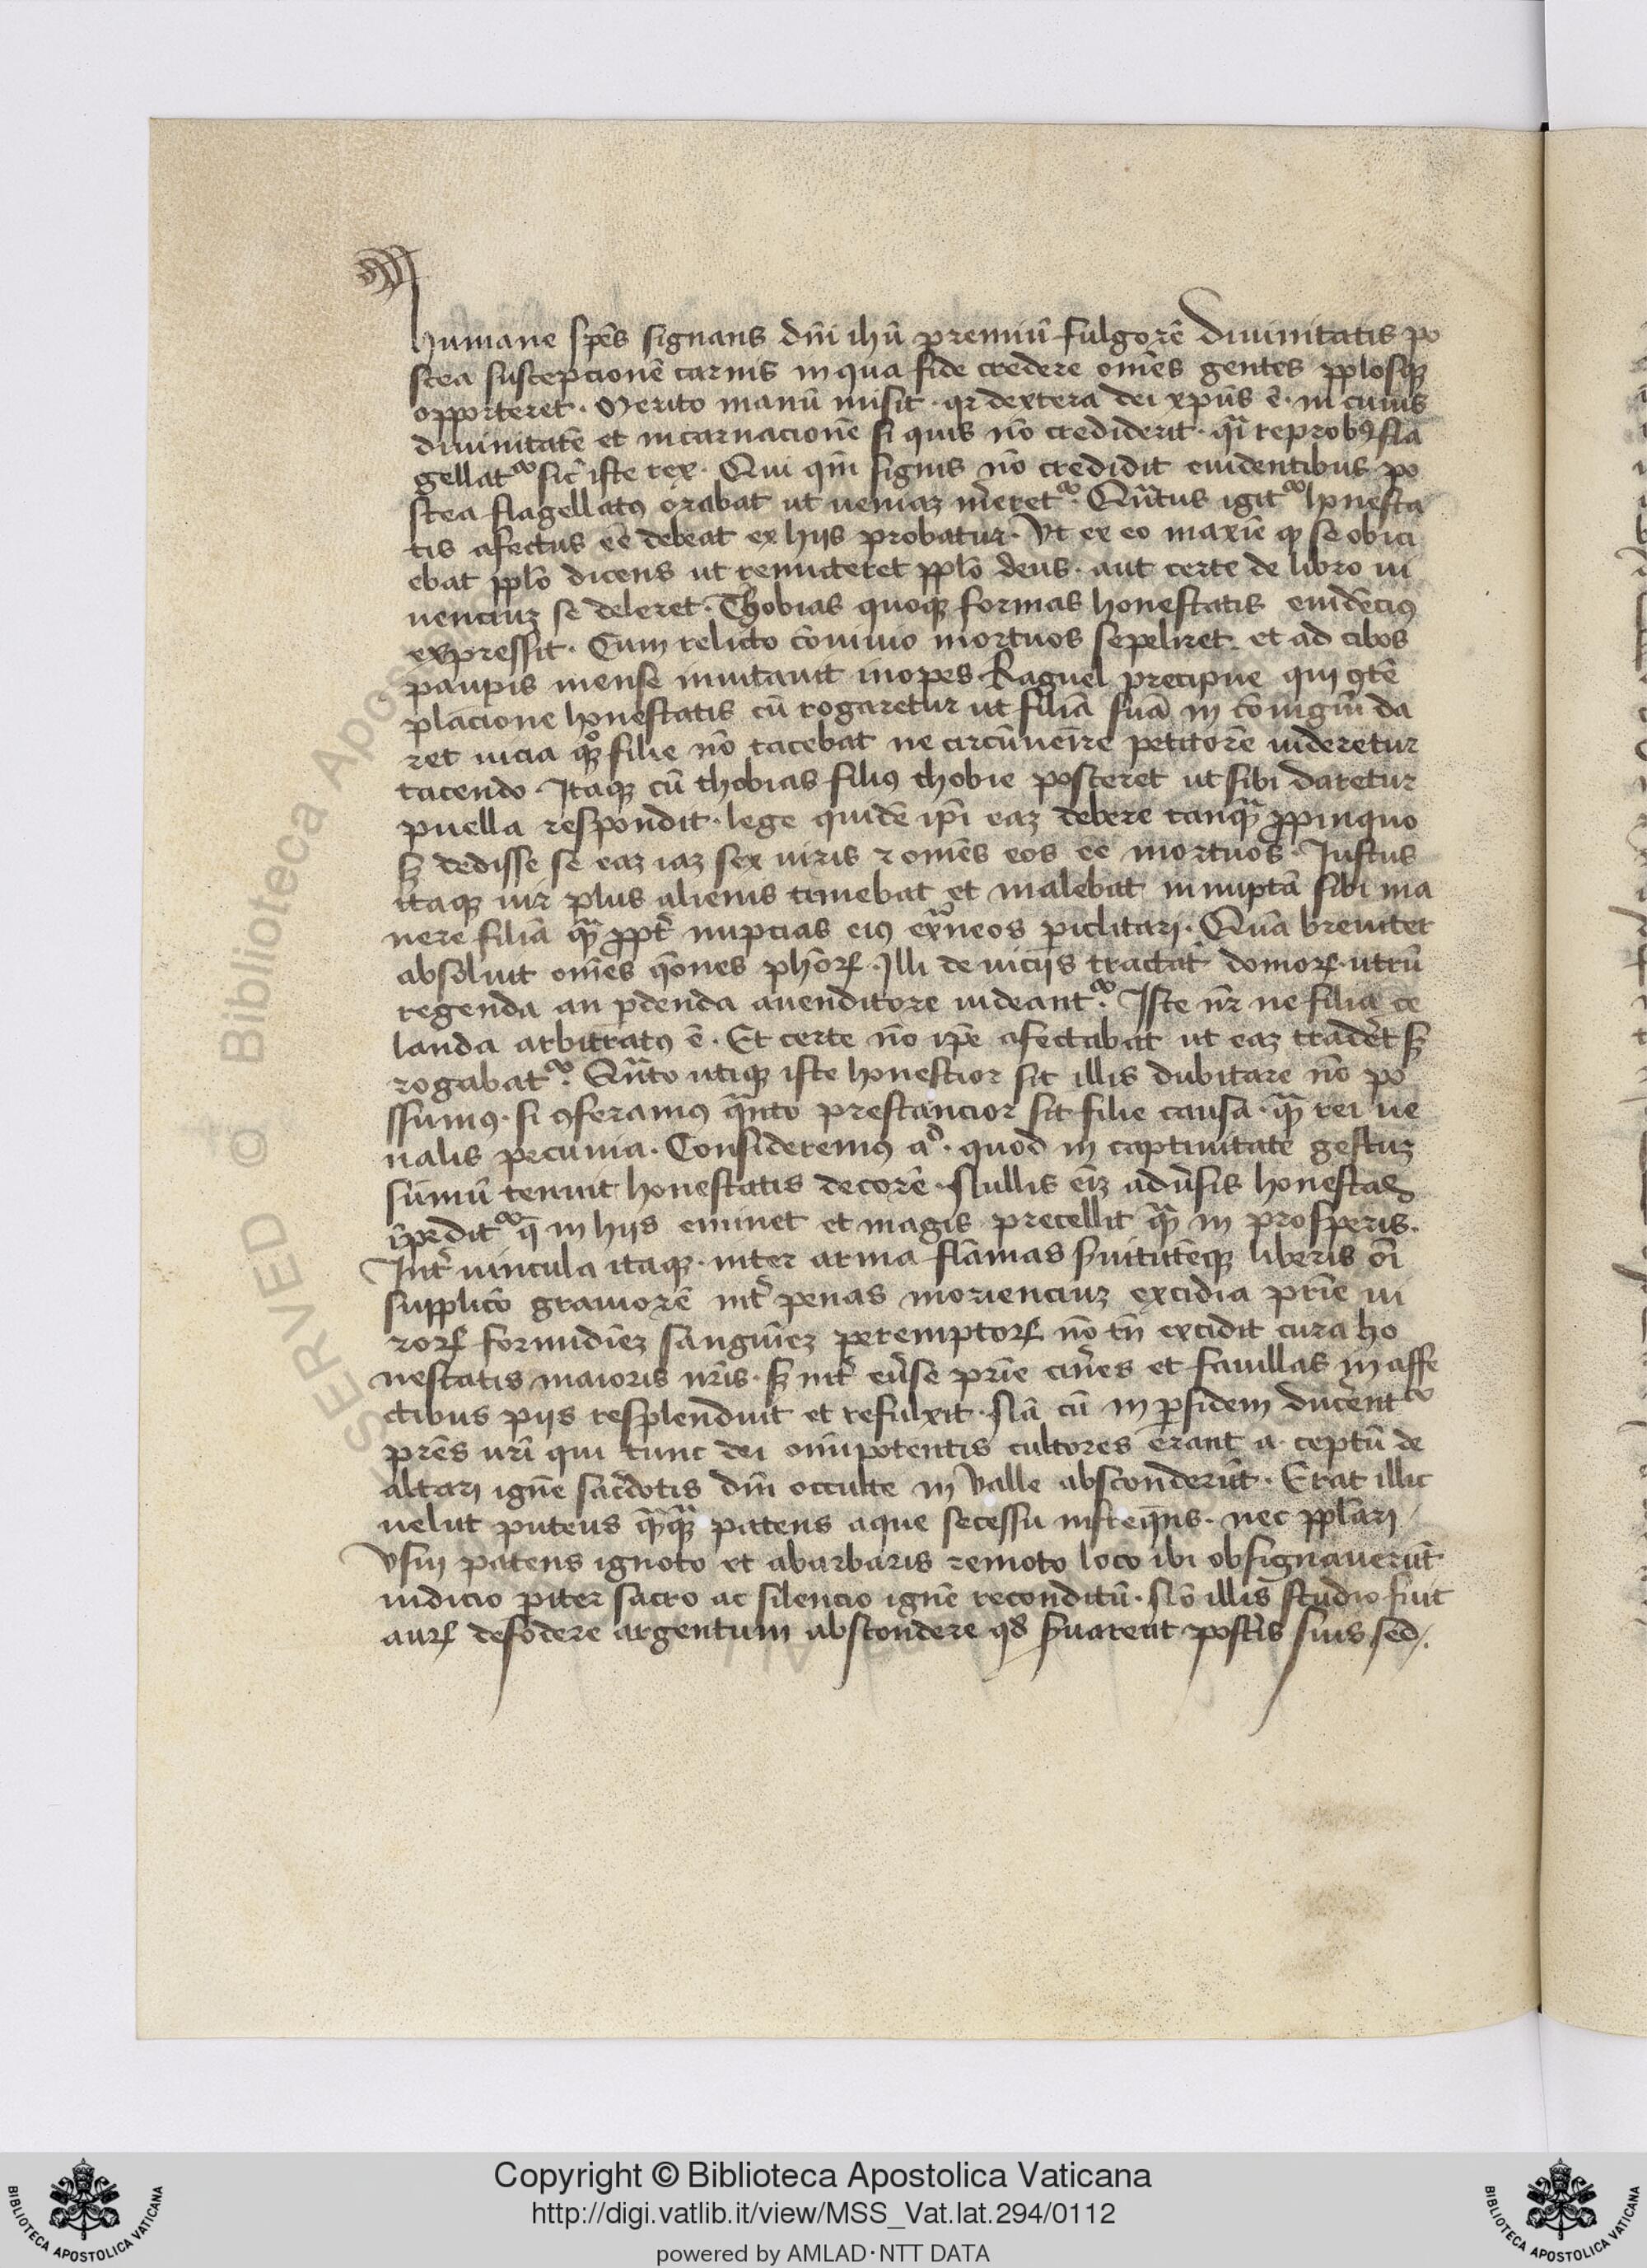 humane sp̄es signans dn̄i ihū premiū fulgorē diuinitatis po
stea suscepcionē carnis in qua fide credere om̄es gentes pp̄losqꝫ
opporteret · Merito manū misit · qr dextera dei xp̄us ē · in cuius
diuinitatē et incarnacionē si quis nō crediderit · qͣi reprobꝰ fla
gellatᷣ sic̄ iste rex · Qui qm̄ signis nō credidit euidentibus po
stea flagellatꝰ orabat ut ueniaꝫ m̄eretᷣ · Qn̄tus igitᷣ honesta
tis afectus eē debeat ex hijs probatur · Vt ex eo maxīe qꝫ se obici
ebat pp̄lo dicens ut remitteret pp̄lo deus · aut certe de libro ui
uenciuꝫ se deleret · Thobias quoqꝫ formas honestatis euidēciꝰ
expressit · Cum relicto cōuiuio mortuos sepeliret · et ad cibos
paupis mense inuitauit inopes · Raguel precipue qui ꝯtē
placione honestatis cū rogaretur ut filiā suā in cōiugiū da
ret uicia qꝫ filie nō tacebat ne circūuenire petitorē uideretur
tacendo · Itaqꝫ cū thobias filiꝰ thobie posceret ut sibi daretur
puella respondit · lege quidē ip̄i eaꝫ debere tanqͣ ꝓpinquo
sꝫ dedisse se eaꝫ iaꝫ sex uiris ⁊ om̄es eos eē mortuos · Iustus
itaqꝫ uir plus alienis timebat et malebat innuptā sibi ma
nere filiā qͣ ꝓpt̄ nupcias eiꝰ ext̄neos piclitari · Quā breuiter
absoluit om̄es qōnes ph̄orꝝ · Illi de uicijs tractāt domorꝝ · utrū
regenda an pdenda auenditore uideantᷣ · Iste nr̄ ne filia ce
landa arbitratꝰ ē · Et certe nō ip̄e afectabat ut eaꝫ trad̄et sꝫ
rogabatᷣ · Qn̄to utiqꝫ iste honestior sit illis dubitare nō po
ssumꝰ · si ꝯferamꝰ qͣnto prestancior sit filie causa · qͣ rei ue
nalis pecunia · Consideremꝰ aᵒ · quod in captiuitate gestuꝫ
sūmū tenuit honestatis decorē · Nullis eīꝫ adūsis honestas
īpeditᷣ q̄ in hijs eminet et magis precellit qͣ in prosperis ·
Int̄ uincula itaqꝫ · inter arma flāmas s̄uitutēqꝫ liberis ōi
supplicō grauiorē int̄ penas morienciuꝫ excidia prīe ui
rorꝝ formidīeꝫ sanguīeꝫ peremptorꝝ nō tn̄ excidit cura ho
nestatis maioris nr̄is · sꝫ int̄ eūse prīe cin̄es et fauillas in affe
ctibus pijs resplenduit et refulxit · Nā cū in p̄sidem ducentᷣ
prēs nr̄i qui tunc dei om̄ipotentis cultores erant a · ceptū de
altari ignē sac̄dotis dn̄i occulte in ualle absconderūt · Erat illic
uelut puteus qͣqͣ patens aque secessu infreqn̄s · nec pp̄lari
vsui patens ignoto et abarbaris remoto loco ibi obsignauerūt
iudicio piter sacro ac silencio ignē reconditū · Nō illis studio fuit
aurꝝ defodere argentum abscondere qđ s̄uarent post̄is suis sed
SERVED © Biblioteca Apos
Copyright © Biblioteca Apostolica Vaticana
http://digi.vatlib.it/view/MSS_Vat.lat.294/0112
powered by AMLAD·NTT DATA
BIBLIOTECA APOSTOLICA VATICANA
BIBLIOTECA APOSTOLICA VATICANA